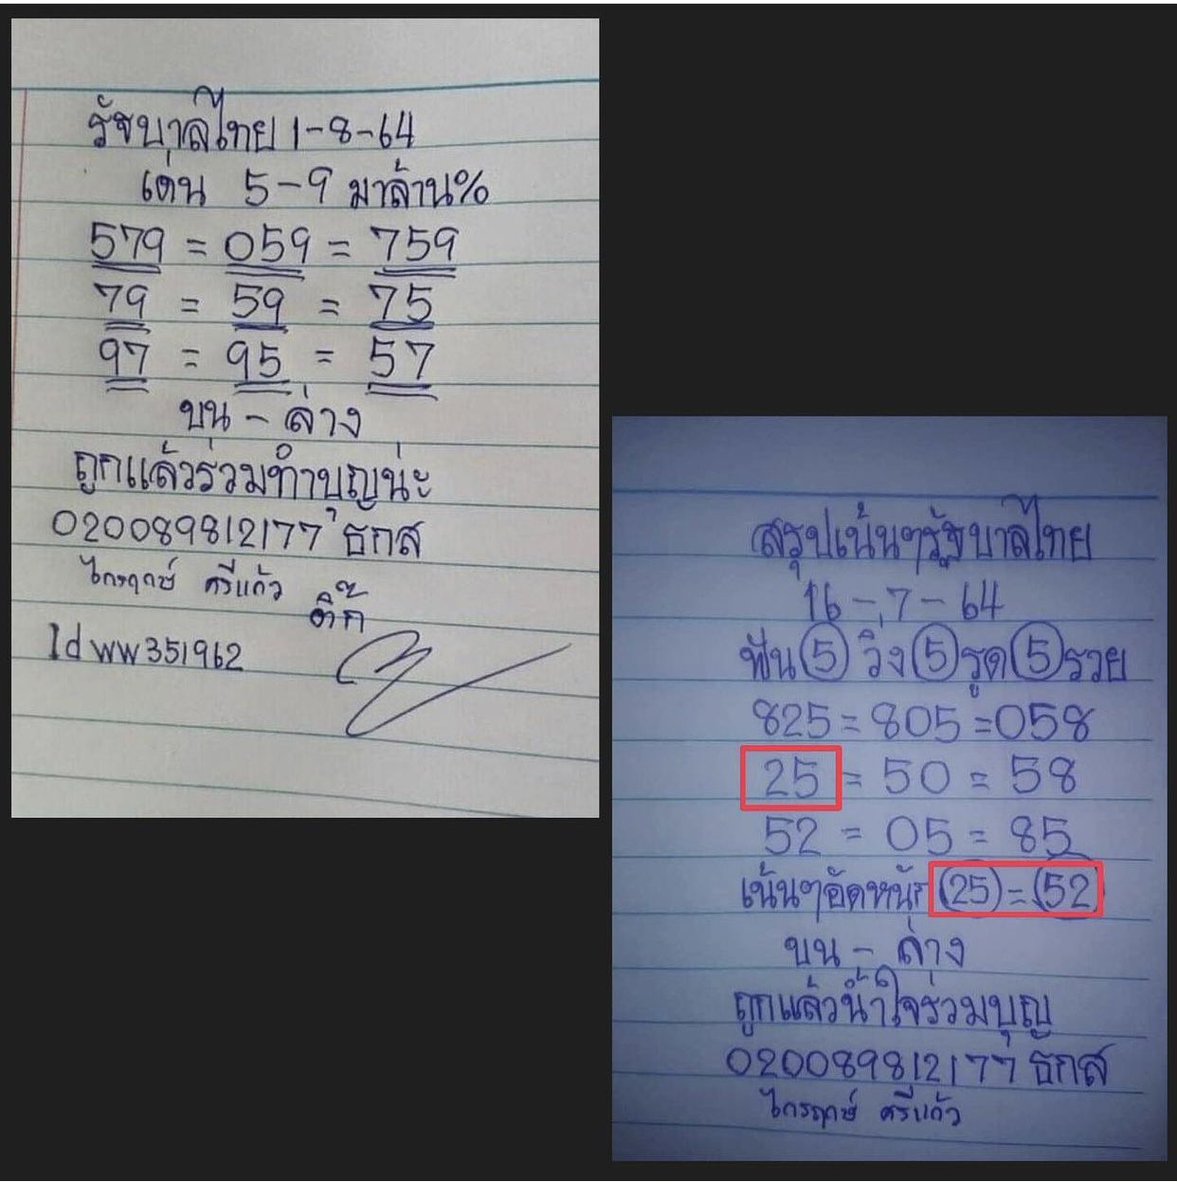 รัฐบาลไทย 1-8-64
เด่น 5-9 มาล้าน%
579 = 059 = 759
79 = 59 = 75
97 = 95 = 57
บน - ล่าง
ถูกแล้วร่วมทำบุญน่ะ
020089812177 ธกส
ไกรฤกษ์ ศรีแก้ว
ติ๊ก
Id ww351962
สรุปเน้นๆรัฐบาลไทย
16-7-64
ฟัน 5 วิ่ง 5 รูด 5 รวย
825 = 805 = 058
25 = 50 = 58
52 = 05 = 85
เน้นๆอัดหนัก 25 = 52
บน - ล่าง
ถูกแล้วน้ำใจร่วมบุญ
020089812177 ธกส
ไกรฤกษ์ ศรีแก้ว